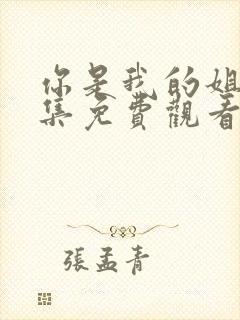 你是我的姐
集免費觀看
張孟青